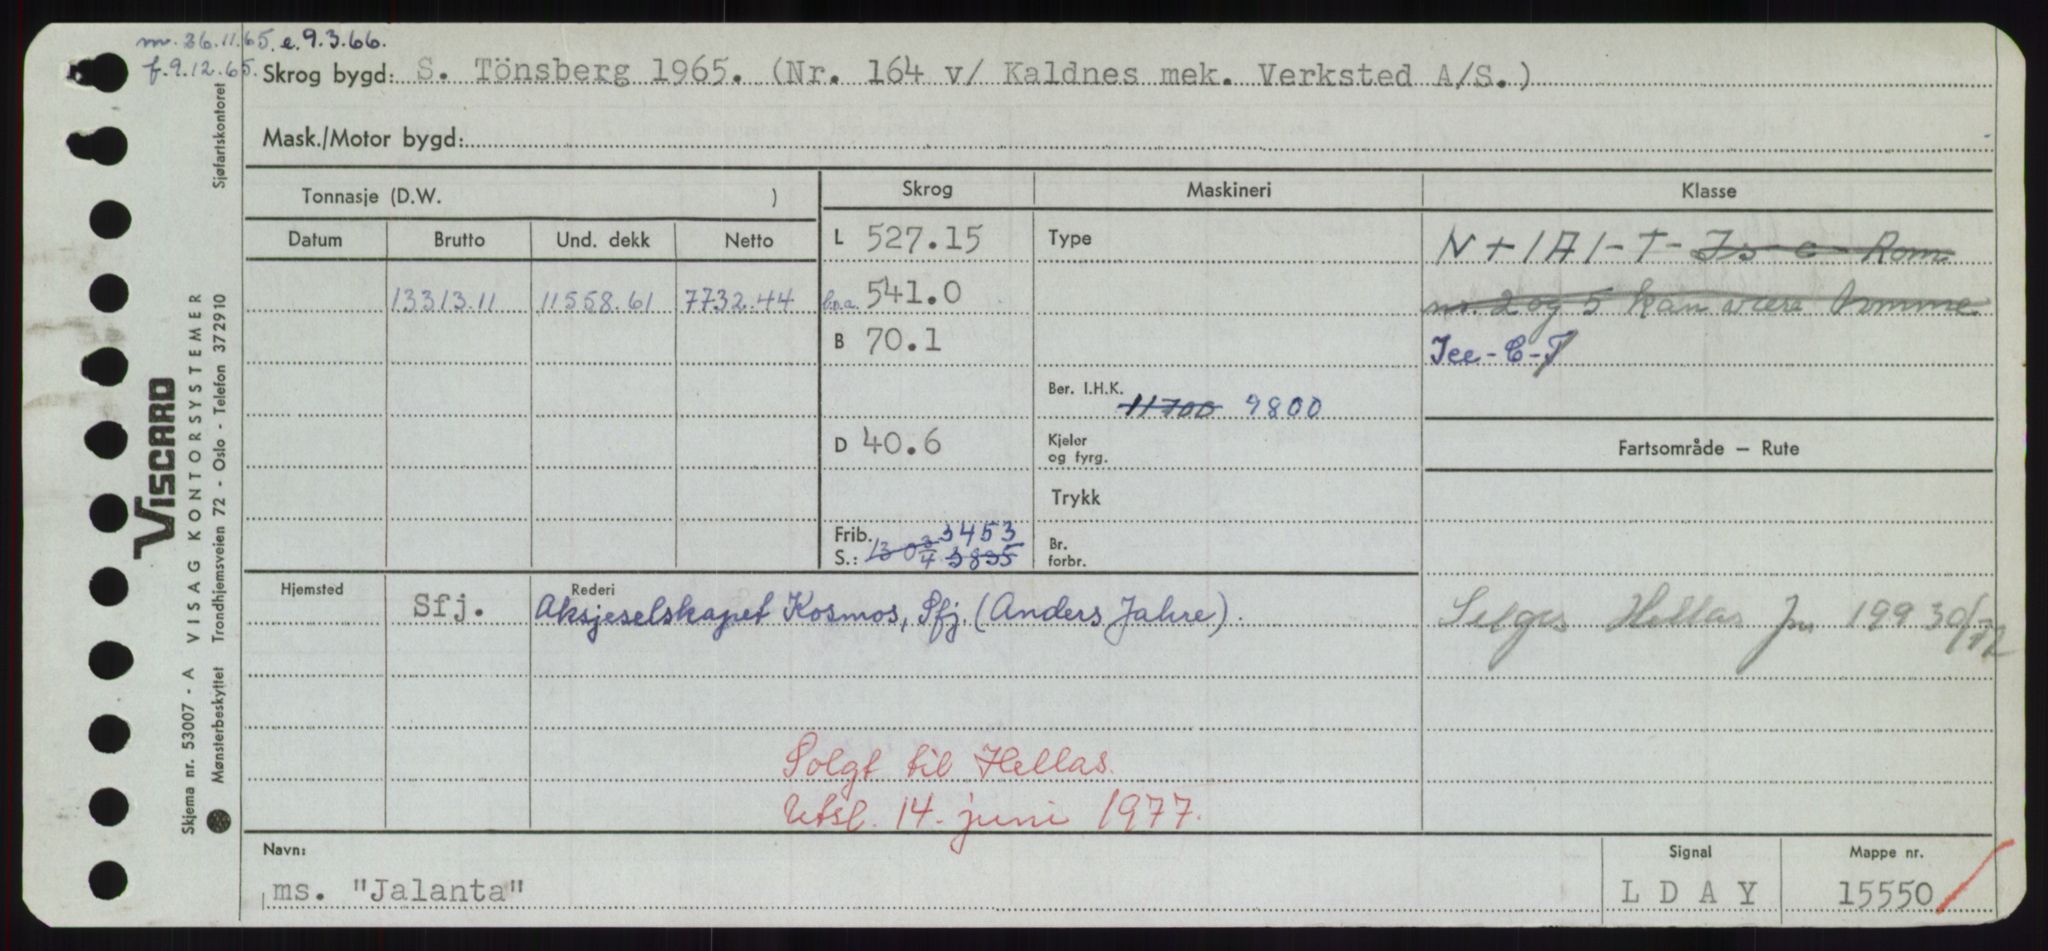 m. 26.11.65. e. 9.3.66.
f. 9.12.65.
Skrog bygd: S. Tönsberg 1965. (Nr. 164 v/ Kaldnes mek. Verksted A/S.)
Mask./Motor bygd:
Tonnasje (D.W. )
Skrog
Maskineri
Klasse
Datum
Brutto
Und. dekk
Netto
L 527.15
Type
N + 1A1 - T - Is - c - Rom
13313.11
11558.61
7732.44
b.o.a. 541.0
nr. 2 og 5 kan være tomme
B 70.1
Ice - C -
Ber. I.H.K.
11700 9800
D 40.6
Kjeler
og fyrg.
Fartsområde — Rute
Trykk
Frib.
S.:
3453
13-0 3/4 3835
Br.
forbr.
Hjemsted
Rederi
Sfj.
Aksjeselskapet Kosmos, Sfj. (Anders Jahre).
Selges Hellas Jnr 199 30/ 72
Solgt til Hellas.
Utsl. 14. juni 1977.
Navn:
ms. "Jalanta"
Signal
L D A Y
Mappe nr.
15550
Skjema nr. 53007 - A VISAG KONTORSYSTEMER
VISCARD
Mønsterbeskyttet Trondhjemsveien 72 - Oslo - Telefon 372910
Sjøfartskontoret